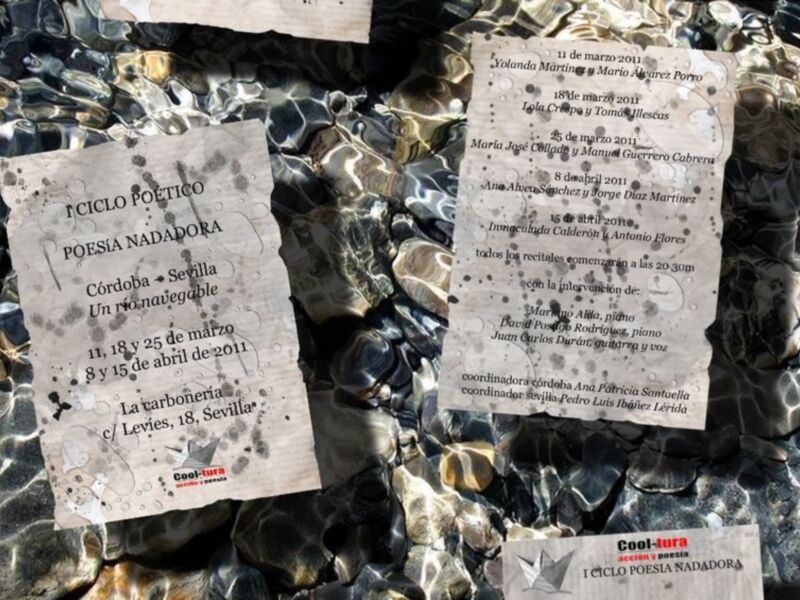 I CICLO POÉTICO
POESÍA NADADORA
Córdoba – Sevilla
Un río navegable
11, 18 y 25 de marzo
8 y 15 de abril de 2011
La carbonería
c/ Levíes, 18, Sevilla
Cool-tura
acción y poesía
11 de marzo 2011
Yolanda Martínez y Mario Álvarez Porro
18 de marzo 2011
Lola Crespo y Tomás Illescas
25 de marzo 2011
María José Collado y Manuel Guerrero Cabrera
8 de abril 2011
Ana Alvea Sánchez y Jorge Díaz Martínez
15 de abril 2011
Inmaculada Calderón y Antonio Flores
todos los recitales comenzarán a las 20 30m
con la intervención de:
Mariano Alda, piano
David Postigo Rodríguez, piano
Juan Carlos Durán, guitarra y voz
coordinadora córdoba Ana Patricia Santaella
coordinador sevilla Pedro Luis Ibáñez Lérida
Cool-tura
acción y poesía
I CICLO POESIA NADADORA